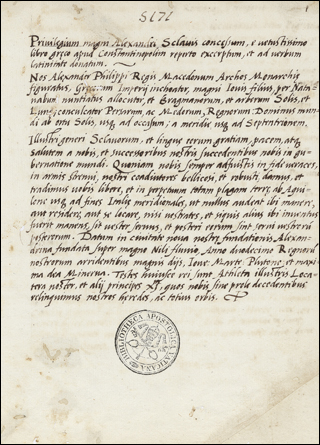 5171
Privilegium magni Alexandri Sclavis concessum, e vetustissimo
libro græco apud Constantinopolim reperto excerptum, et ad verbum
latinitate donatum.
Nos Alexander Philippi Regis Macedonum Archos Monarchiæ
figuratus, Græcorum Imperij inchoator, magni Iovis filius, per Nata-
nabum nuntiatus allocutor, et Bragmanorum, et arborum Solis, et
Lunæ, conculcator Persarum, ac Medorum, Regnorum Dominus mun-
di ab ortu Solis, usq ad occasum, a meridie usq ad Septentrionem.
Illustri generi Sclavorum, et linguæ eorum gratiam, pacem, atq
salutem a nobis, et successoribus nostris succedentibus nobis in gu-
bernatione mundi. Quoniam nobis semper adfuistis in fide veraces,
in armis strenui, nostri coadiutores bellicosi, et robusti, damus, et
tradimus vobis libere, et in perpetuum totam plagam terræ ab Aqui-
lone usq ad fines Italiæ meridionales, ut nullus audeat ibi manere,
aut residere, aut se locare, nisi vestrates, et siquis alius ibi inventus
fuerit manens, sit vester servus, et posteri eorum sint servi vestrorum
posterorum. Datum in civitate nova nostræ fundationis Alexan-
drina, fundata super magno Nili fluvio, Anno duodecimo Regnorum
nostrorum arridentibus magnis dijs, Iove, Marte, Plutone, et maxi-
ma dea Minerva. Testes huiusce rei sunt Athleta illustris Loca-
tera noster, et alij principes XI, quos nobis sine prole decedentibus
relinquimus nostros heredes, ac totius orbis.
BIBLIOTHECA APOSTOLICA VATICANA